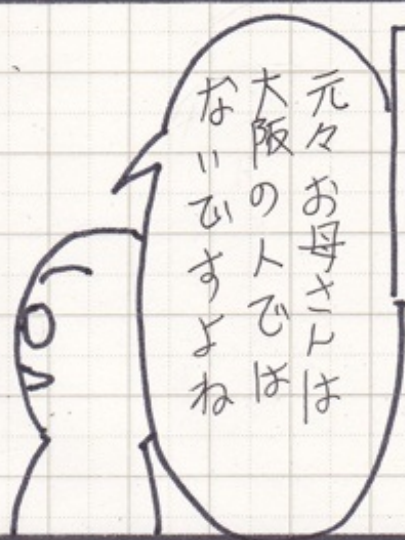 元々お母さんは
大阪の人では
ないですよね